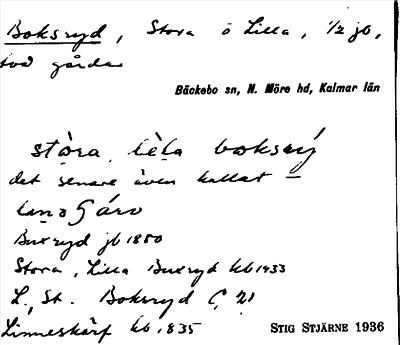 Boksryd, Stora o Lilla, 1/2 jb,
två gårdar
Bäckebo sn, N. Möre hd, Kalmar län
stòra lèla boksrý
det senare även kallat —
Buxryd jb 1880
Stora, Lilla Buxryd kb 1933
L., St. Boksryd C 21
Linneskärf kb 1835
STIG STJÄRNE 1936